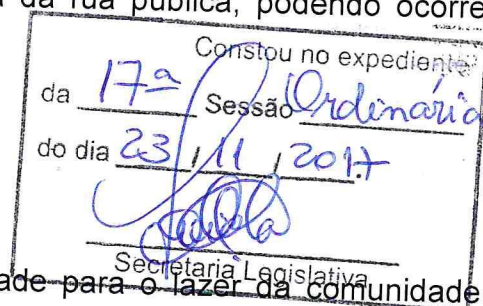 da rua pública, podendo ocorre
Constou no expediente
da 17ª Sessão Ordinária
do dia 23 / 11 / 2017
Secretaria Legislativa
ade para o lazer da comunidade